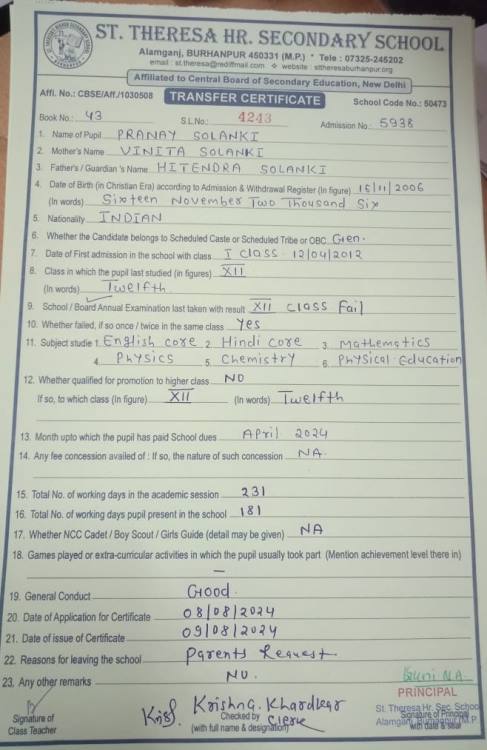 ST. THERESA HR. SECONDARY SCHOOL
Alamganj, BURHANPUR 450331 (M.P.) * Tele : 07325-245202
email : st.theresa@rediffmail.com ❖ website : sttheresaburhanpur.org
Affiliated to Central Board of Secondary Education, New Delhi
Affi. No.: CBSE/Aff./1030508 TRANSFER CERTIFICATE School Code No.: 50473
Book No.: 43 S.L.No.: 4243 Admission No.: 5938
1. Name of Pupil PRANAY SOLANKI
2. Mother's Name VINITA SOLANKI
3. Father's / Guardian 's Name HITENDRA SOLANKI
4. Date of Birth (in Christian Era) according to Admission & Withdrawal Register (In figure) 16/11/2006
(In words) Sixteen November Two Thousand Six
5. Nationality INDIAN
6. Whether the Candidate belongs to Scheduled Caste or Scheduled Tribe or OBC Gen.
7. Date of First admission in the school with class I class 12/04/2012
8. Class in which the pupil last studied (in figures) XII
(In words) Twelfth
9. School / Board Annual Examination last taken with result XII class Fail
10. Whether failed, if so once / twice in the same class Yes
11. Subject studie 1. English core 2. Hindi core 3. Mathematics
4. Physics 5. Chemistry 6. Physical Education
12. Whether qualified for promotion to higher class NO
If so, to which class (In figure) XII (In words) Twelfth
13. Month upto which the pupil has paid School dues April 2024
14. Any fee concession availed of : If so, the nature of such concession NA
15. Total No. of working days in the academic session 231
16. Total No. of working days pupil present in the school 181
17. Whether NCC Cadet / Boy Scout / Girls Guide (detail may be given) NA
18. Games played or extra-curricular activities in which the pupil usually took part (Mention achievement level there in)
—
19. General Conduct Good
20. Date of Application for Certificate 08/08/2024
21. Date of issue of Certificate 09/08/2024
22. Reasons for leaving the school Parents Request
23. Any other remarks NO.
PRINCIPAL
Krishna Khardkar
St. Theresa Hr. Sec. School
Signature of Checked by Clerk Signature of Principal
Class Teacher (with full name & designation) with date & seal